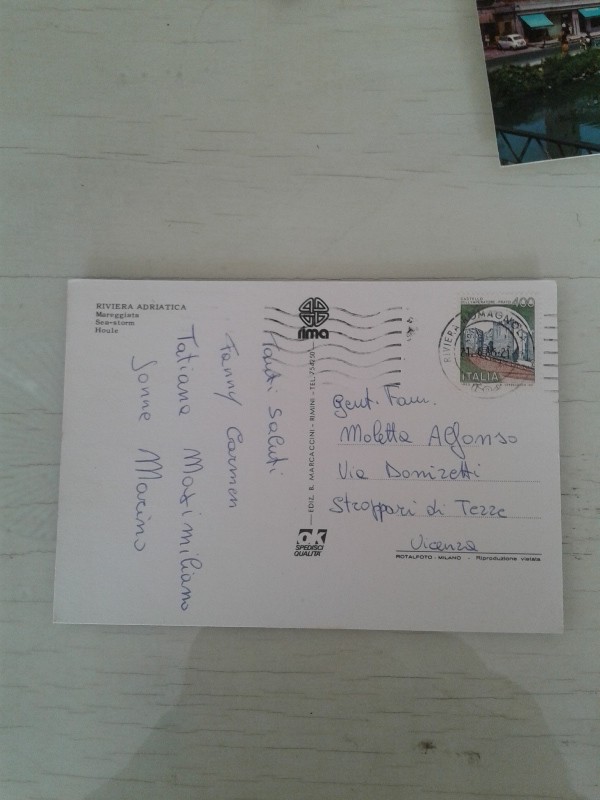 RIVIERA ADRIATICA
Mareggiata
Sea-storm
Houle
Tanti saluti
Fanny Carmen
Tatiana Massimiliano
Sonne Marino
rima
EDIZ. B. MARCACCINI - RIMINI - TEL.
ok
SPEDISCI
QUALITÀ
400
RIVIERA ROMAGNOLA
ITALIA
Gent. Fam.
Moletta Alfonso
Via Donizetti
Stroppari di Tezze
Vicenza
ROTALFOTO - MILANO - Riproduzione vietata